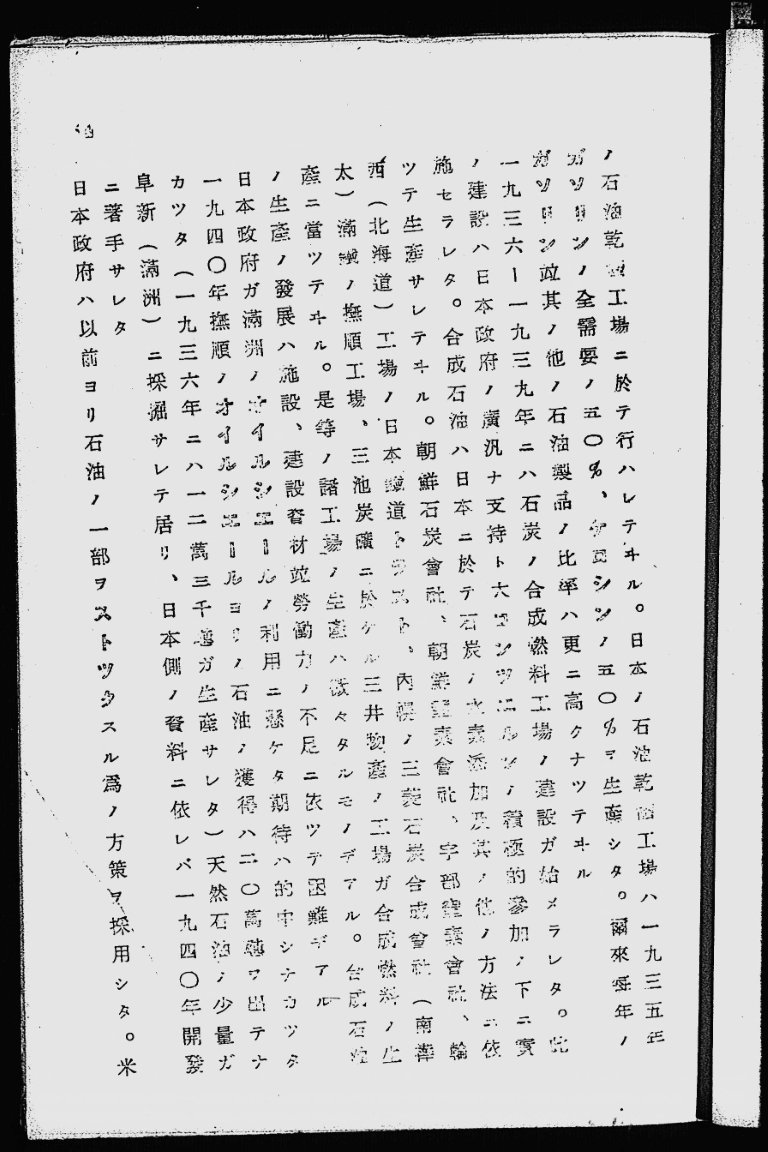 ノ石油乾溜工場ニ於テ行ハレテヰル。日本ノ石油乾溜工場ハ一九三五年
ガソリンノ全需要ノ五〇%、ケロシンノ五〇%ヲ生産シタ。爾來每年ノ
ガソリン竝其ノ他ノ石油製品ノ比率ハ更ニ高クナツテヰル
一九三六ー一九三九年ニハ石炭ノ合成燃料工場ノ建設ガ始メラレタ。此
ノ建設ハ日本政府ノ廣汎ナ支持ト大コンツエルンノ積極的參加ノ下ニ實
施セラレタ。合成石油ハ日本ニ於テ石炭ノ水素添加及其ノ他ノ方法ニ依
ツテ生産サレテヰル。朝鮮石炭會社、朝鮮窒素會社、宇部窒素會社、輪
西(北海道)工場ノ日本鐵道トラスト、內幌ノ三菱石炭合成會社(南樺
太)滿鐵ノ撫順工場、三池炭礦ニ於ケル三井物產ノ工場ガ合成燃料ノ生
產ニ當ツテヰル。是等ノ諸工場ノ生產ハ微々タルモノデアル。合成石油
ノ生產ノ發展ハ施設、建設資材竝勞働力ノ不足ニ依ツテ困難デアル
日本政府ガ滿洲ノオイルシエールノ利用ニ懸ケタ期待ハ的中シナカツタ
一九四〇年撫順ノオイルシエールヨリノ石油ノ獲得ハ二〇萬噸ヲ出テナ
カツタ(一九三六年ニハ一二萬三千噸ガ生産サレタ)天然石油ノ少量ガ
阜新(滿洲)ニ採掘サレテ居リ、日本側ノ資料ニ依レバ一九四〇年開發
ニ著手サレタ
日本政府ハ以前ヨリ石油ノ一部ヲストツクスル爲ノ方策ヲ採用シタ。米